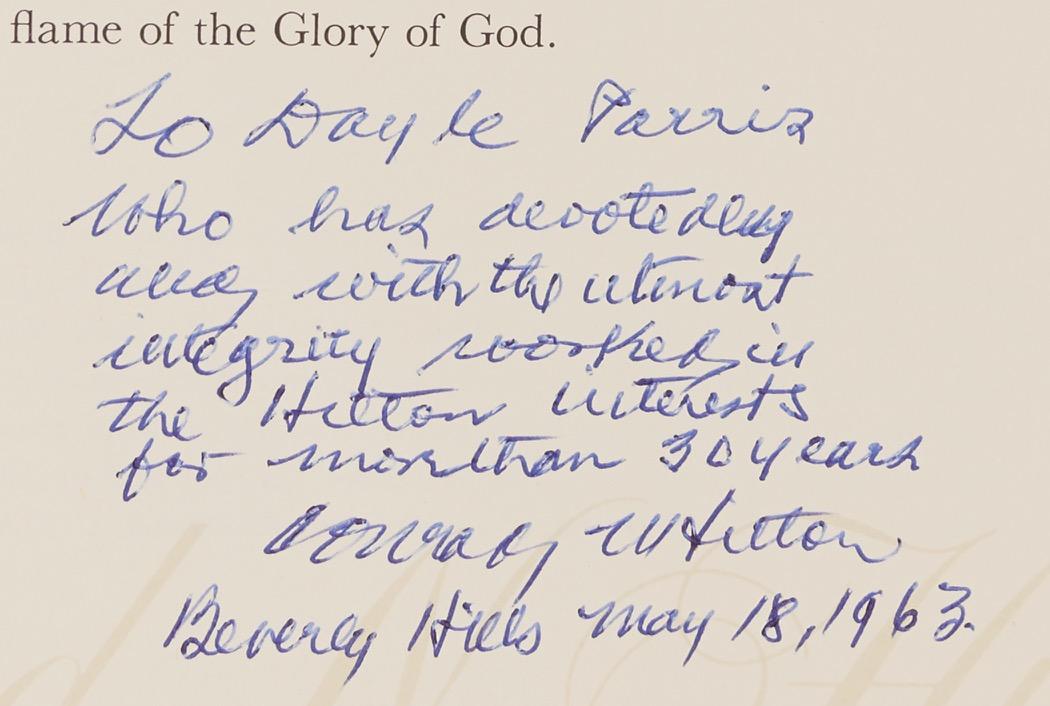 flame of the Glory of God.
To Dayle Parris
Who has devotedly
and with the utmost
integrity worked in
the Hilton interests
for more than 30 years
Conrad N Hilton
Beverly Hills May 18, 1963.